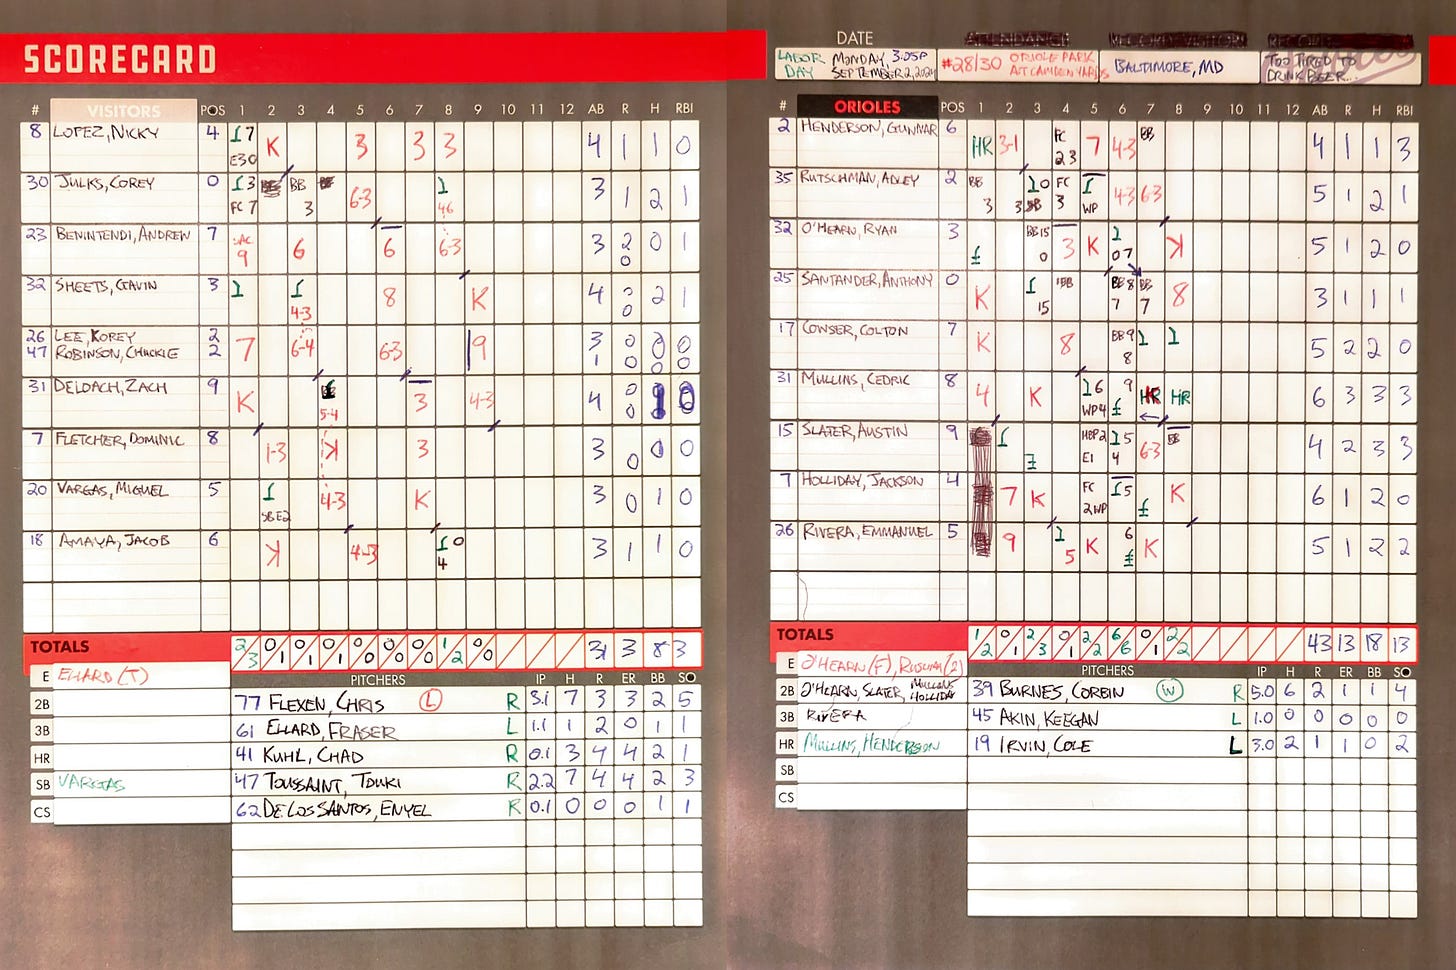 SCORECARD
DATE
LABOR DAY
MONDAY 3:05P
SEPTEMBER 2, 2024
#28/30 ORIOLE PARK
AT CAMDEN YARDS
BALTIMORE, MD
TOO TIRED TO
DRINK BEER...
# VISITORS POS 1 2 3 4 5 6 7 8 9 10 11 12 AB R H RBI
8 LOPEZ, NICKY 4 I 7 E3 0 K 3 3 3 4 1 1 0
30 JULKS, COREY 0 I 3 FC 7 BB 3 6-3 1 46 3 1 2 1
23 BENINTENDI, ANDREW 7 SAC 9 6 6 6-3 3 2 0 0 1
32 SHEETS, GAVIN 3 I I 4-3 8 K 4 0 0 2 1
26 LEE, KOREY 2 7 6-4 6-3 3 0 0 0
47 ROBINSON, CHUCKIE 2 9 1 0 0 0
31 DELOACH, ZACH 9 K 5-4 3 4-3 4 0 0 1 0
7 FLETCHER, DOMINIC 8 1-3 K 3 3 0 0 0
20 VARGAS, MIGUEL 5 I SB E2 4-3 K 3 0 1 0
18 AMAYA, JACOB 6 K 4-3 I 0 4 3 1 1 0
TOTALS 2/3 0/1 0/1 0/1 0/0 0/0 0/0 1/2 0/0 31 3 8 3
E ELLARD (T)
2B
3B
HR
SB VARGAS
CS
PITCHERS IP H R ER BB SO
77 FLEXEN, CHRIS L R 3.1 7 3 3 2 5
61 ELLARD, FRASER L 1.1 1 2 0 1 1
41 KUHL, CHAD R 0.1 3 4 4 2 1
47 TOUSSAINT, TOUKI R 2.2 7 4 4 2 3
62 DE LOS SANTOS, ENYEL R 0.1 0 0 0 1 1
# ORIOLES POS 1 2 3 4 5 6 7 8 9 10 11 12 AB R H RBI
2 HENDERSON, GUNNAR 6 HR 3-1 FC 2 3 7 4-3 BB 4 1 1 3
35 RUTSCHMAN, ADLEY 2 BB 3 I 0 3 SB FC 3 I WP 4-3 6-3 5 1 2 1
32 O'HEARN, RYAN 3 BB 15 0 3 K 1 0 7 K 5 1 2 0
25 SANTANDER, ANTHONY 0 K I 15 IBB BB 8 7 BB 7 8 3 1 1 1
17 COWSER, COLTON 7 K 8 BB 9 8 1 1 5 2 2 0
31 MULLINS, CEDRIC 8 4 K I 6 WP 4 9 HR HR 6 3 3 3
15 SLATER, AUSTIN 9 I HBP 2 E1 I 5 4 6-3 BB 4 2 3 3
7 HOLLIDAY, JACKSON 4 7 K FC 2 WP I 5 K 6 1 2 0
26 RIVERA, EMMANUEL 5 9 1 5 K 6 K 5 1 2 2
TOTALS 1/2 0/1 2/3 0/1 2/2 6/6 0/1 2/2 43 13 18 13
E O'HEARN (F), RUTSCHM (2)
2B O'HEARN, SLATER, MULLINS HOLLIDAY
3B RIVERA
HR MULLINS, HENDERSON
SB
CS
PITCHERS IP H R ER BB SO
39 BURNES, CORBIN W R 5.0 6 2 1 1 4
45 AKIN, KEEGAN L 1.0 0 0 0 0 0
19 IRVIN, COLE L 3.0 2 1 1 0 2